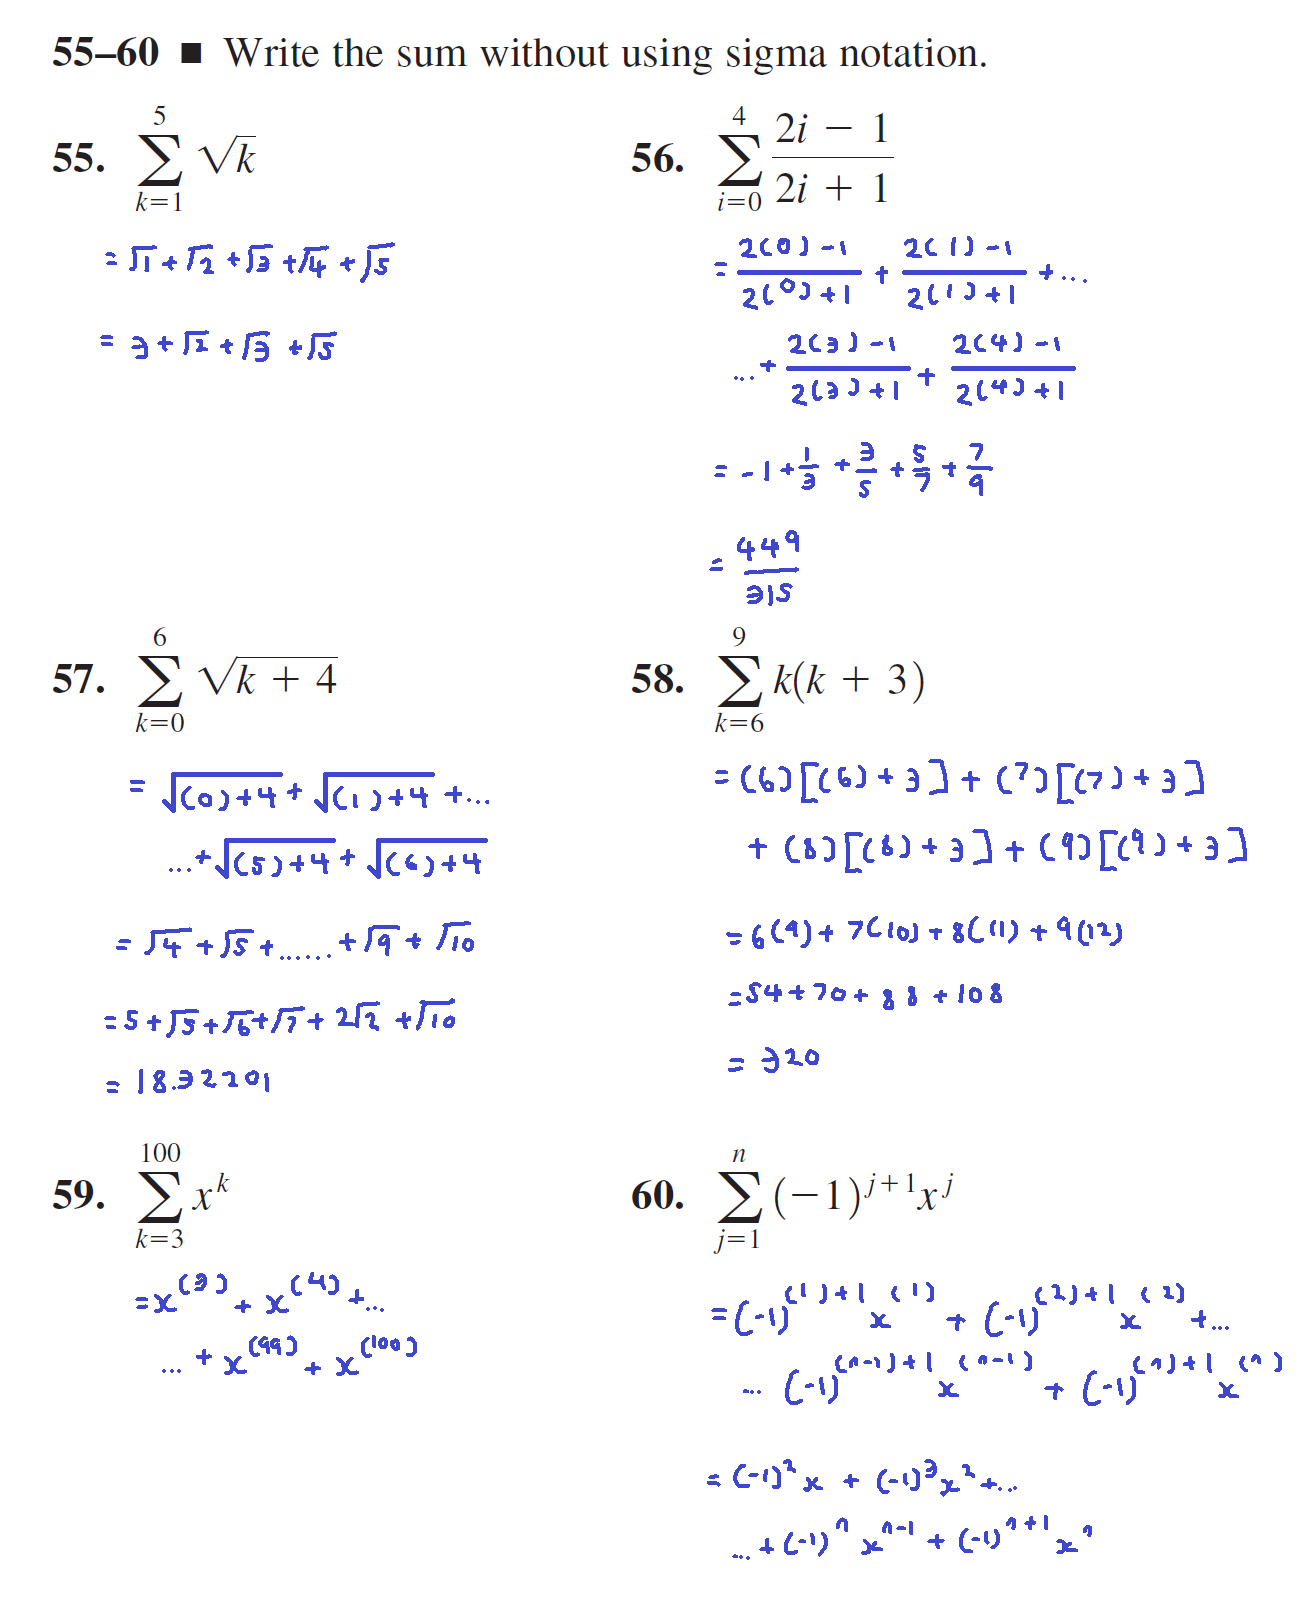 55–60 ■ Write the sum without using sigma notation.
55. ∑_{k=1}^{5} √k
= √1 + √2 + √3 + √4 + √5
= 3 + √2 + √3 + √5
56. ∑_{i=0}^{4} (2i − 1)/(2i + 1)
= (2(0) - 1)/(2(0) + 1) + (2(1) - 1)/(2(1) + 1) + ...
... + (2(3) - 1)/(2(3) + 1) + (2(4) - 1)/(2(4) + 1)
= -1 + 1/3 + 3/5 + 5/7 + 7/9
= 449/315
57. ∑_{k=0}^{6} √(k + 4)
= √((0)+4) + √((1)+4) + ...
... + √((5)+4) + √((6)+4)
= √4 + √5 + ...... + √9 + √10
= 5 + √5 + √6 + √7 + 2√2 + √10
= 18.32201
58. ∑_{k=6}^{9} k(k + 3)
= (6)[(6)+3] + (7)[(7)+3]
+ (8)[(8)+3] + (9)[(9)+3]
= 6(9) + 7(10) + 8(11) + 9(12)
= 54 + 70 + 88 + 108
= 320
59. ∑_{k=3}^{100} x^k
= x^(3) + x^(4) + ...
... + x^(99) + x^(100)
60. ∑_{j=1}^{n} (−1)^{j+1} x^j
= (-1)^{(1)+1} x^(1) + (-1)^{(2)+1} x^(2) + ...
... (-1)^{(n-1)+1} x^(n-1) + (-1)^{(n)+1} x^(n)
= (-1)^2 x + (-1)^3 x^2 + ...
... + (-1)^n x^{n-1} + (-1)^{n+1} x^n